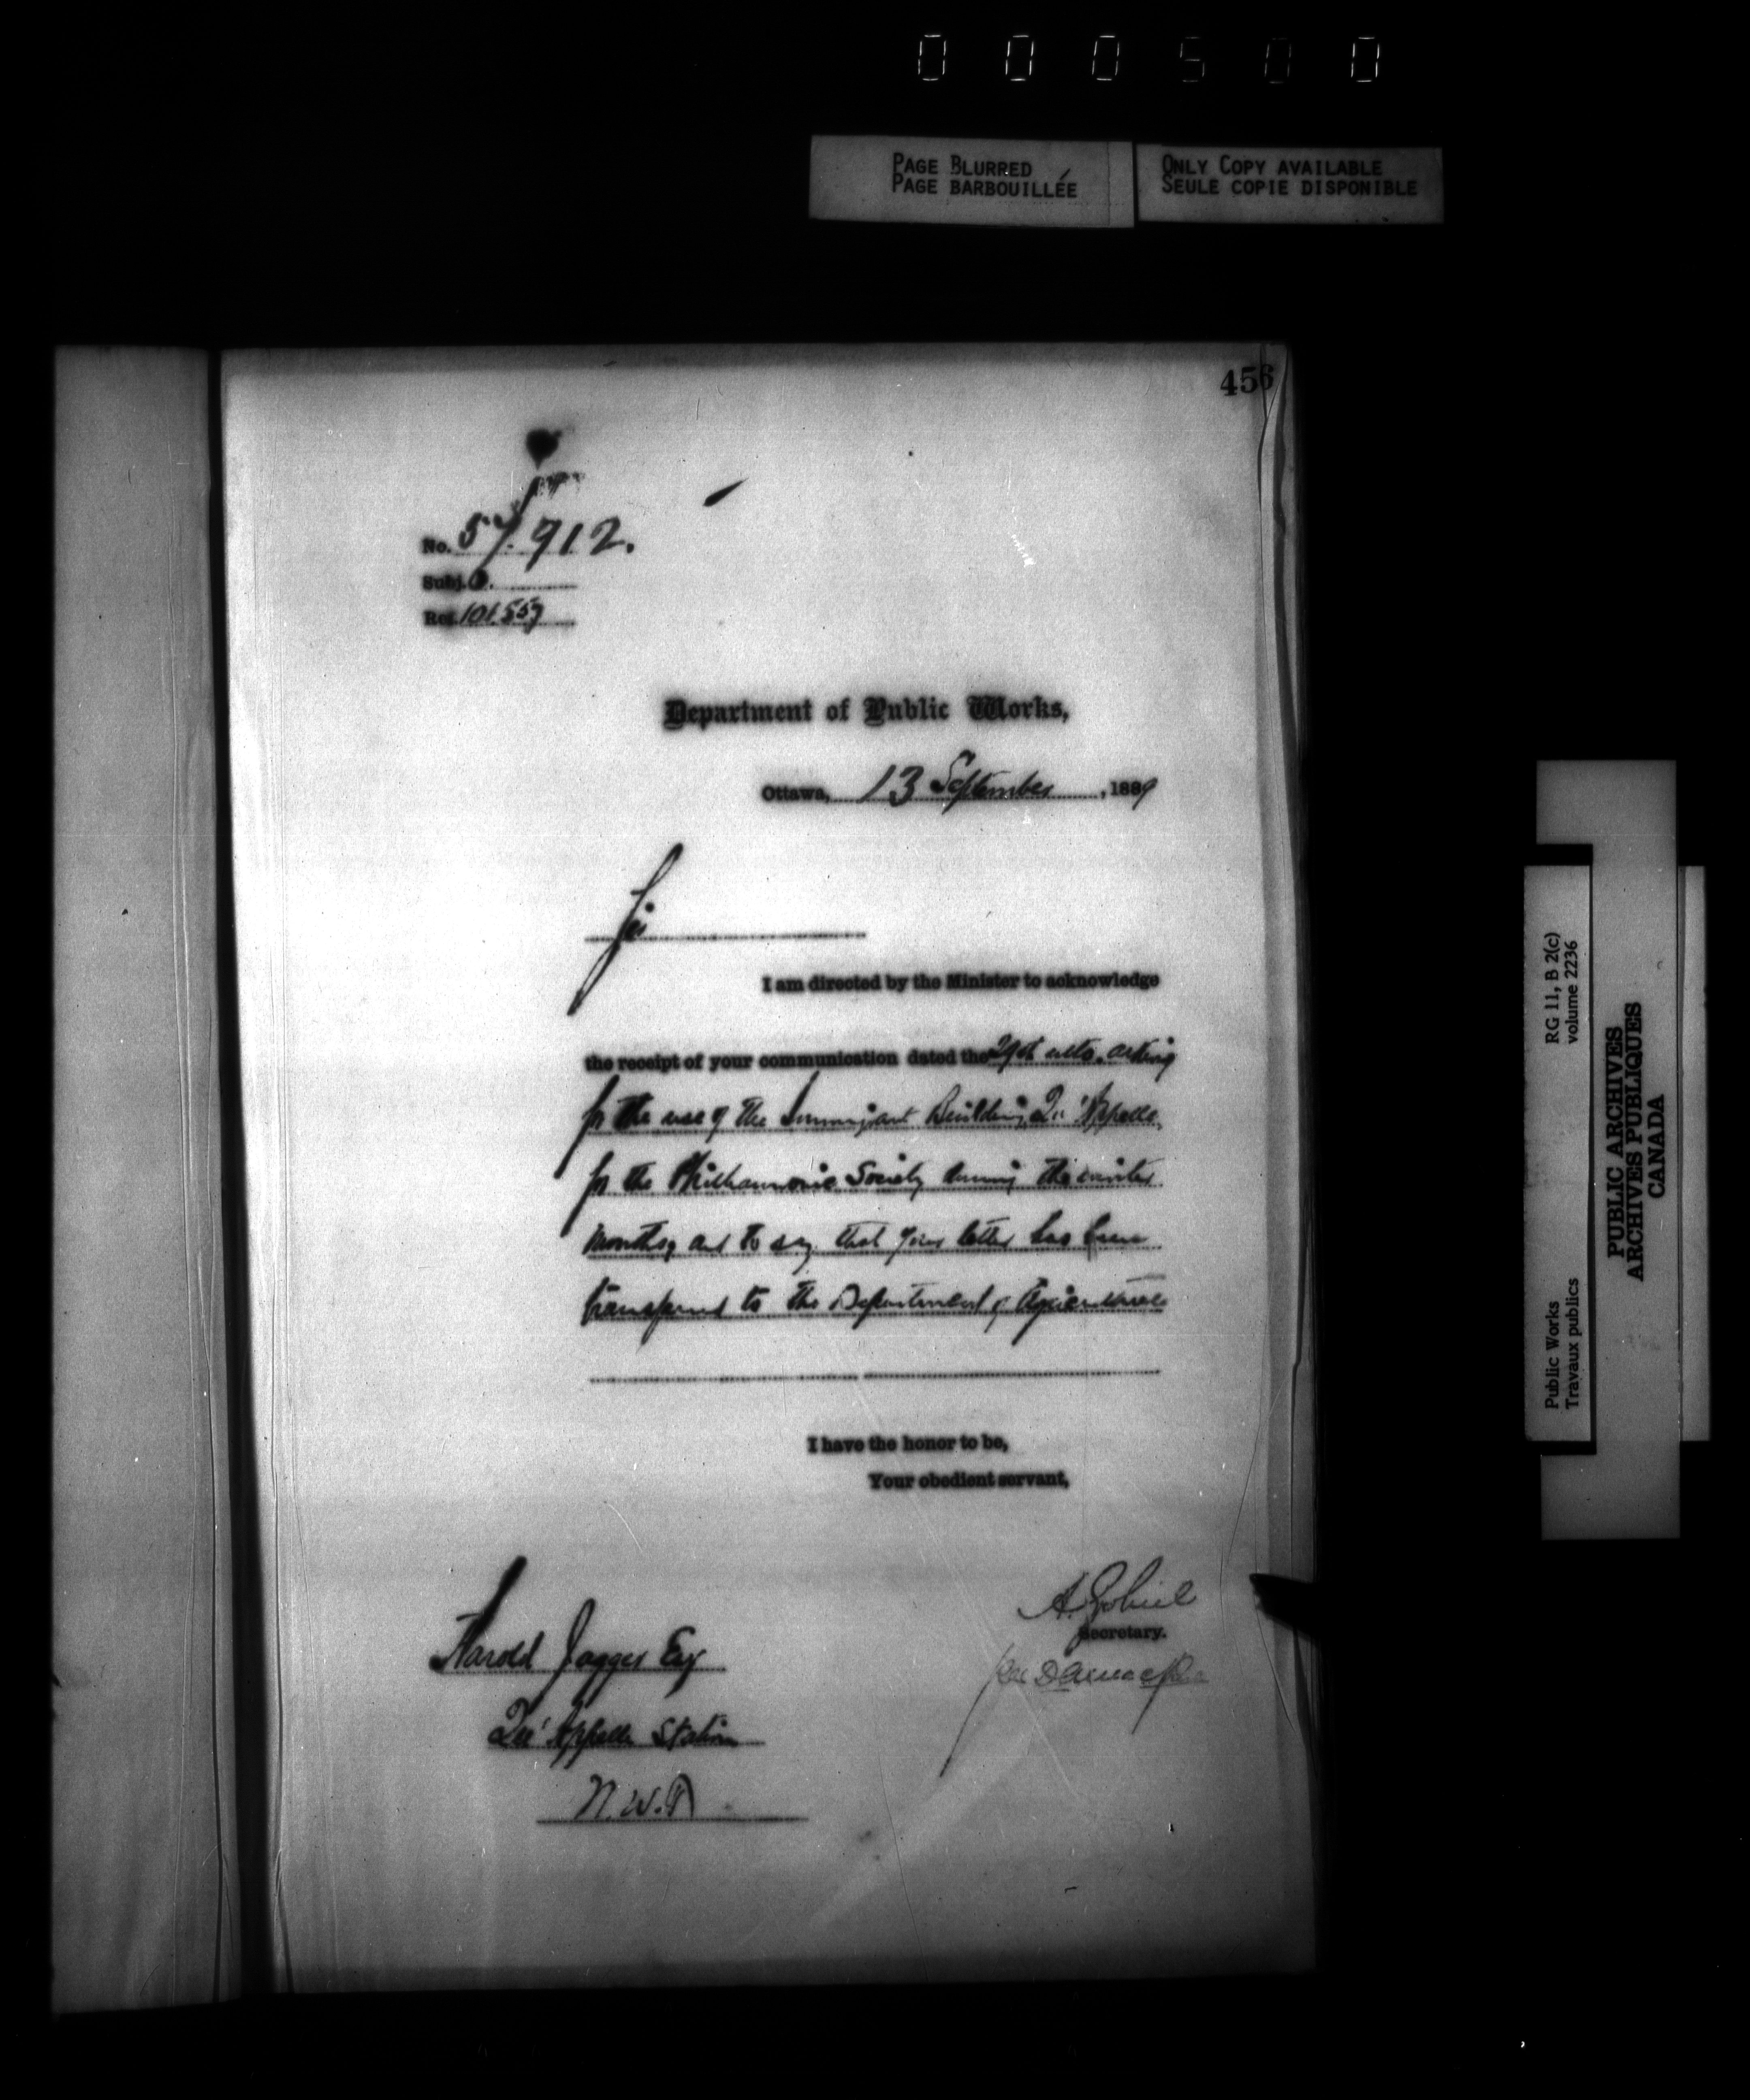 000500
PAGE BLURRED
PAGE BARBOUILLÉE
ONLY COPY AVAILABLE
SEULE COPIE DISPONIBLE
456
No. 57.912.
Subj.
Ref. 101557
Department of Public Works,
Ottawa, 13 September, 1889
Sir
I am directed by the Minister to acknowledge
the receipt of your communication dated the 29th ulto. asking
for the use of the Immigant Building, Qu'Appelle,
for the Philharmonic Society during the winter
months, and to say that your letter has been
transferred to the Department of Agriculture
I have the honor to be,
Your obedient servant,
A. Gobeil
Secretary.
Harold Jagger Esq
Qu'Appelle Station
N.W.T
RG 11, B 2(c)
volume 2236
Public Works
Travaux publics
PUBLIC ARCHIVES
ARCHIVES PUBLIQUES
CANADA